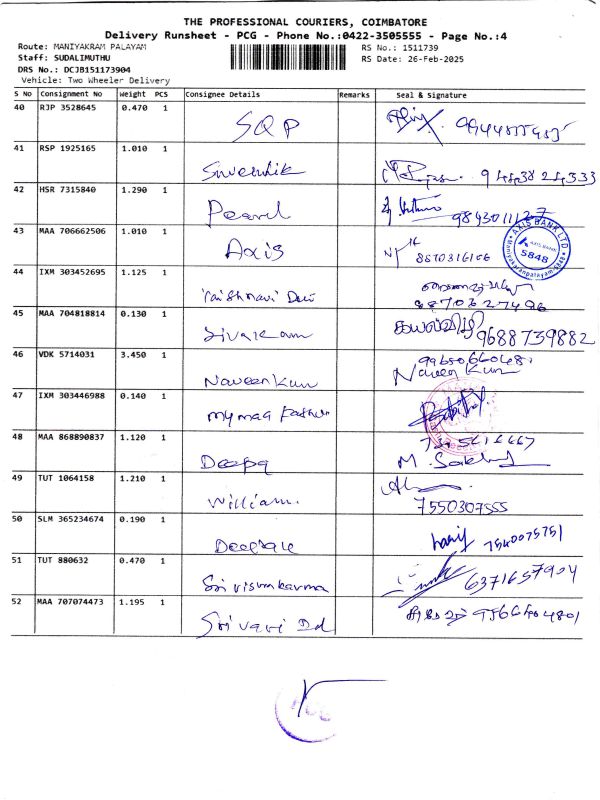 THE PROFESSIONAL COURIERS, COIMBATORE
Delivery Runsheet - PCG - Phone No.:0422-3505555 - Page No.:4
Route: MANIYAKRAM PALAYAM
RS No.: 1511739
Staff: SUDALIMUTHU
RS Date: 26-Feb-2025
DRS No.: DCJB151173904
Vehicle: Two Wheeler Delivery
S No Consignment No Weight PCS Consignee Details Remarks Seal & Signature
40 RJP 3528645 0.470 1
SQP
41 RSP 1925165 1.010 1
42 HSR 7315840 1.290 1
Pearl
9843011127
43 MAA 706662506 1.010 1
Axis
8870316106
AXIS BANK LTD
AXIS BANK
5848
44 IXM 303452695 1.125 1
8870627496
45 MAA 704818814 0.130 1
Sivakam
9688739882
46 VDK 5714031 3.450 1
Naveen Kum
Naveen Kum
47 IXM 303446988 0.140 1
48 MAA 868890837 1.120 1
Deepa
49 TUT 1064158 1.210 1
William.
7550307555
50 SLM 365234674 0.190 1
7540075751
51 TUT 880632 0.470 1
Sri viswakarma
6371657904
52 MAA 707074473 1.195 1
Sri vari
9566404801